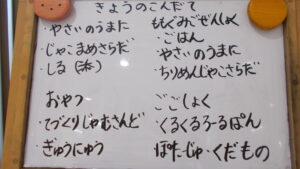 きょうのこんだて
・やさいのうまに
・じゃこまめさらだ
・しる(添)
おやつ
・てづくりじゃむさんど
・ぎゅうにゅう
ももぐみごぜんしょく
・ごはん
・やさいのうまに
・ちりめんじゃこさらだ
ごごしょく
・くるくるろーるぱん
ぽたーじゅ・くだもの